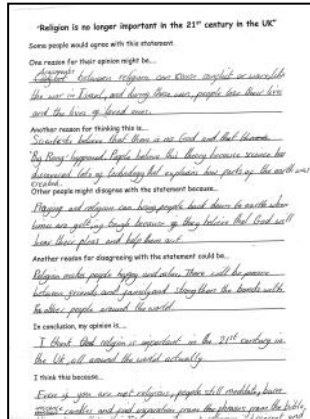 "Religion is no longer important in the 21st century in the UK"
Some people would agree with this statement.
One reason for their opinion might be...
Arguments
between religions can cause conflict or wars like
the war in Israel, and during these wars, people lose their lives
and the lives of loved ones.
Another reason for thinking this is...
Scientists believe that there is no God and that
'Big Bang' happened. People believe this theory because science has
discovered lots of technology that explains how parts of the earth was
created.
Other people might disagree with the statement because...
Praying and religion can bring people back down to earth when
times are getting tough because if they believe that God will
hear their pleas and help them out.
Another reason for disagreeing with the statement could be...
Religion makes people happy and There will be peace
between friends and family and strengthen the bonds with
other people around the world.
In conclusion, my opinion is....
I think that religion is important in the 21st century in
the UK, all around the world actually.
I think this because...
Even if you are not religious, people still meditate, burn
incense candles and find inspiration from the phrases from the bible,